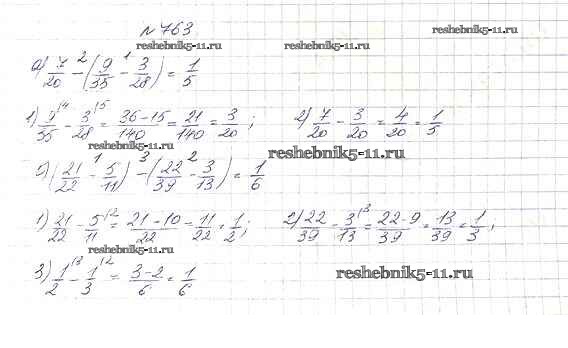 №763
reshebnik5-11.ru reshebnik5-11.ru reshebnik5-11.ru
а) 7/20 -² (9/35 -¹ 3/28) = 1/5
1) 9/35 ⁄4 - 3/28 ⁄5 = 36-15/140 = 21/140 = 3/20; 2) 7/20 - 3/20 = 4/20 = 1/5
reshebnik5-11.ru reshebnik5-11.ru
б) (21/22 -¹ 5/11) -³ (22/39 -² 3/13) = 1/6
1) 21/22 - 5/11 ⁄2 = 21-10/22 = 11/22 = 1/2; 2) 22/39 - 3/13 ⁄3 = 22-9/39 = 13/39 = 1/3;
reshebnik5-11.ru
3) 1/2 ⁄3 - 1/3 ⁄2 = 3-2/6 = 1/6
reshebnik5-11.ru